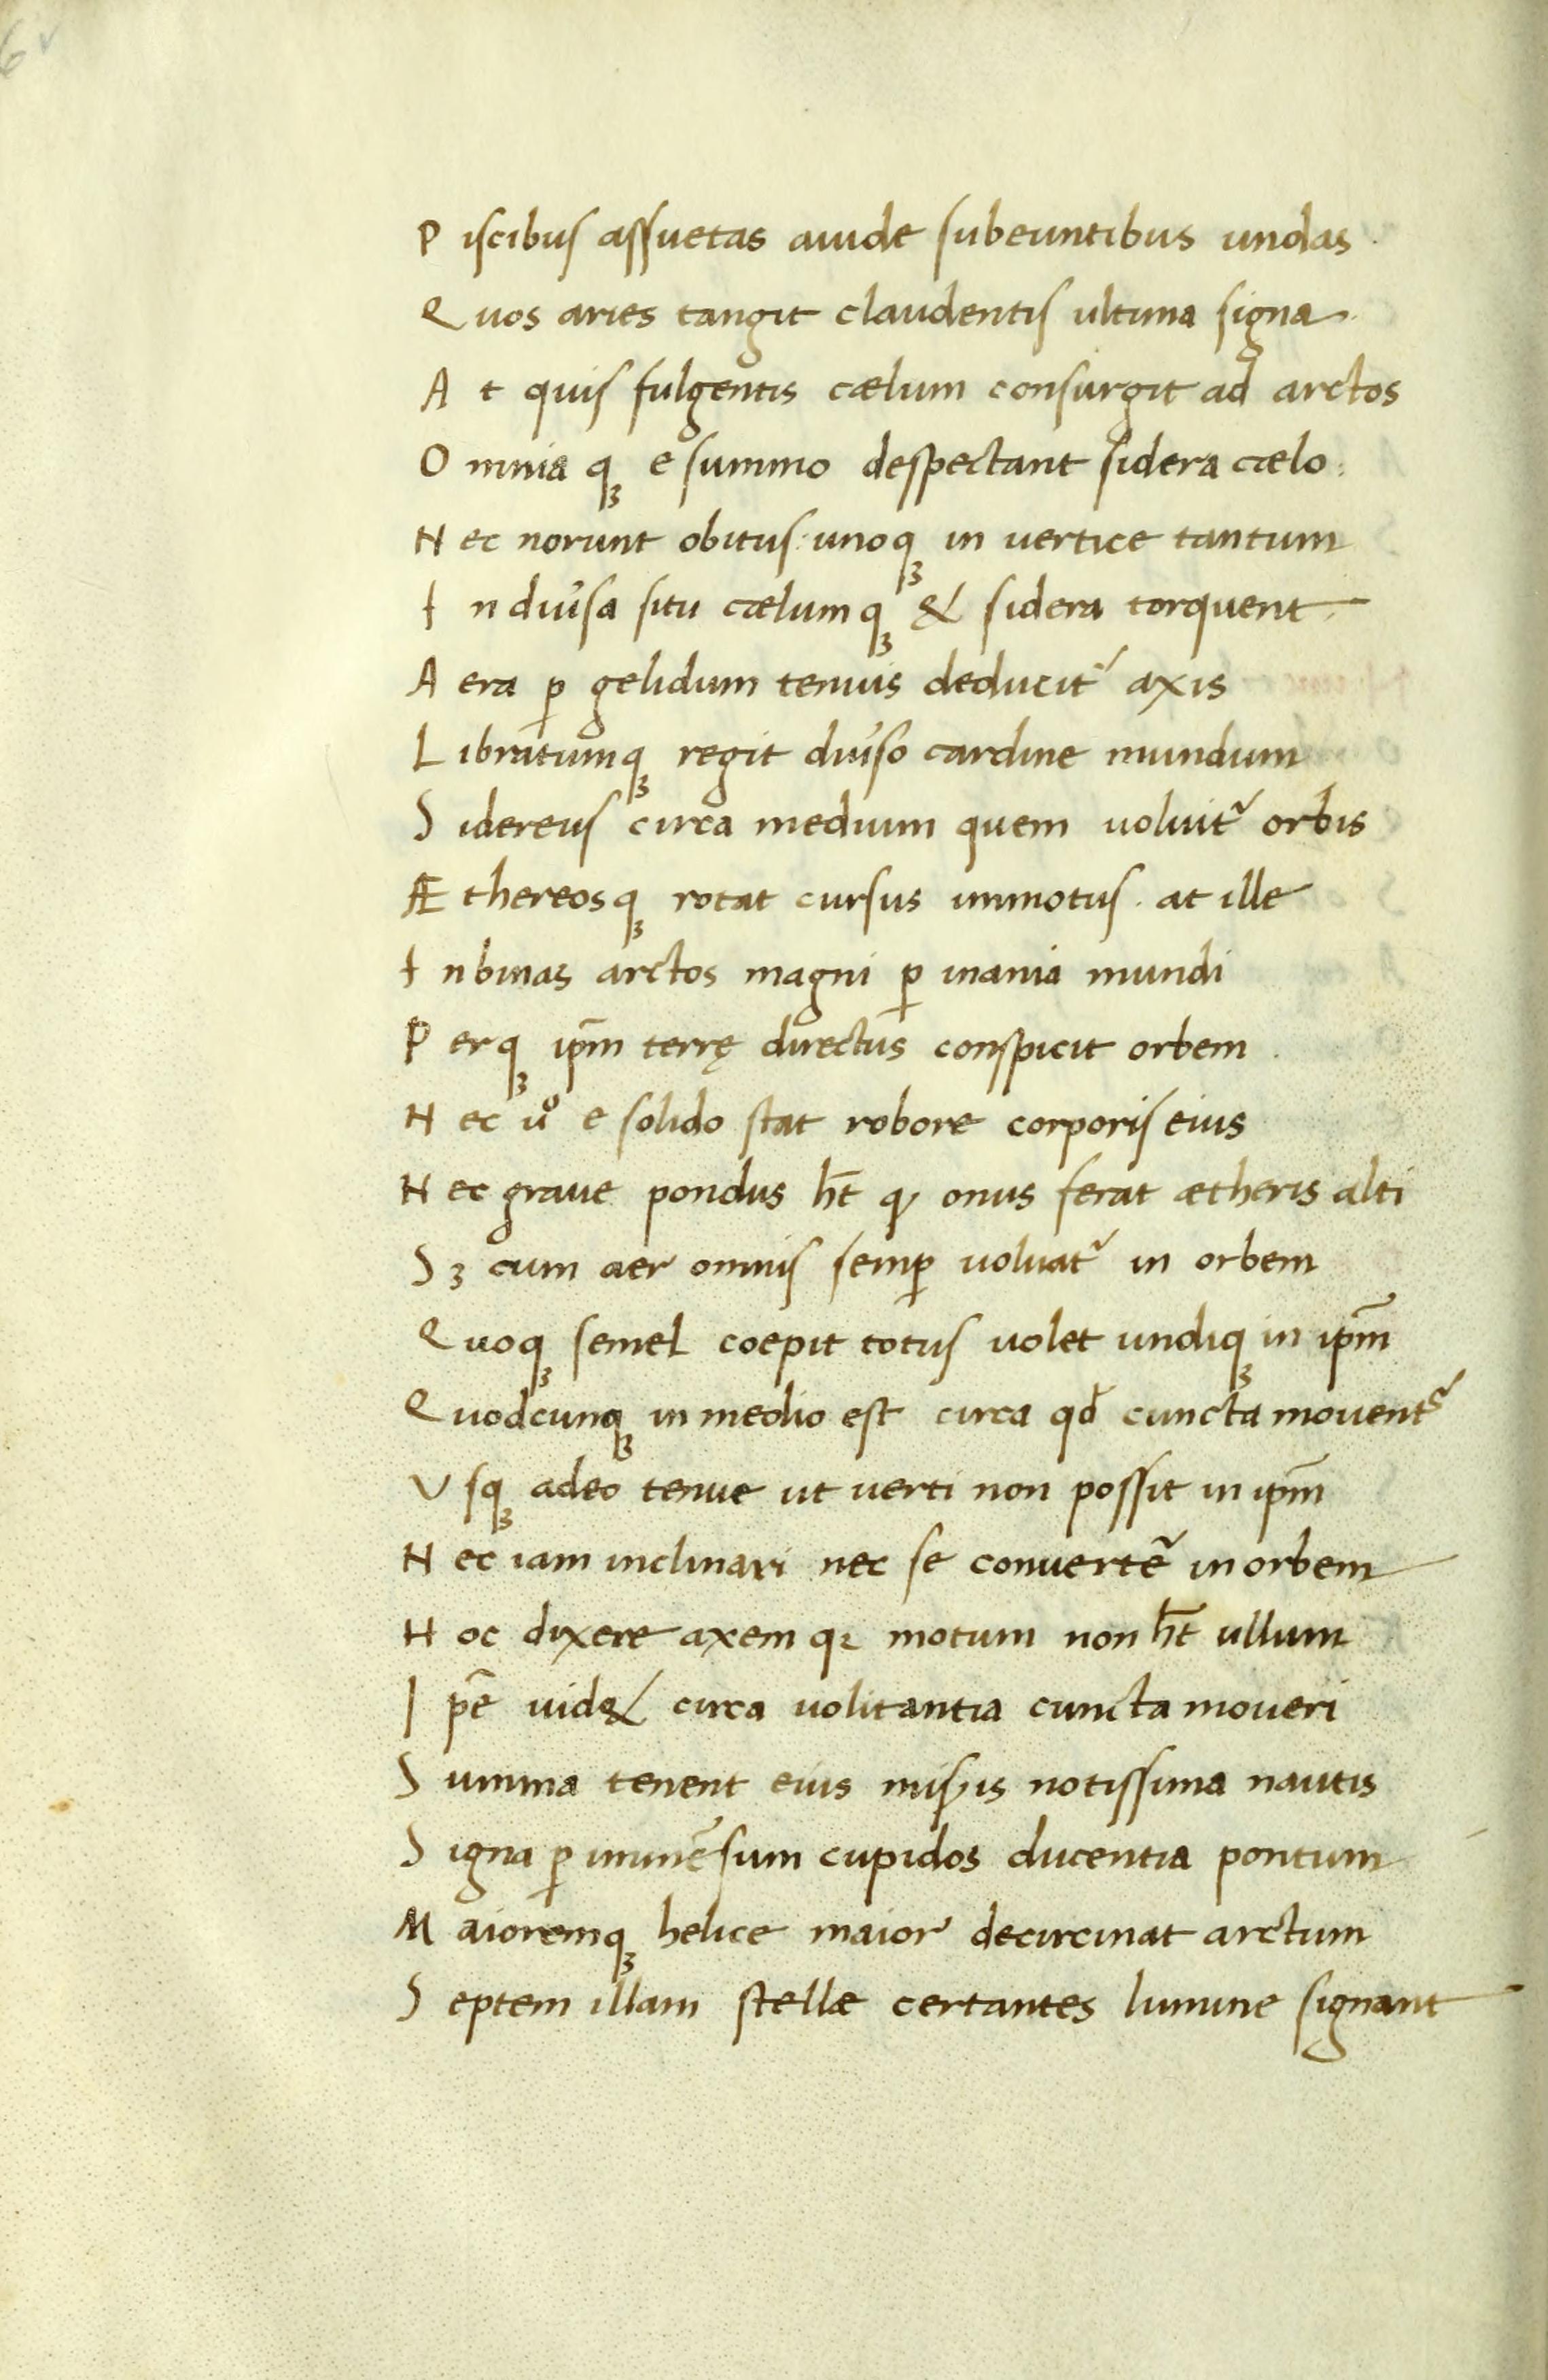 6v
P iscibus assuetas auide subeuntibus undas.
Q uos aries tangit claudentis ultima signa.
A t quis fulgentis cælum consurgit ad arctos
O mnia qꝫ e summo despectant sidera cælo:
N ec norunt obitus: unoqꝫ in uertice tantum
I n diuisa situ cælumqꝫ & sidera torquent.
A era ꝑ gelidum tenuis deducit᷑ axis
L ibratumqꝫ regit diuiso cardine mundum
S idereus circa medium quem uoluit᷑ orbis
Æ thereosqꝫ rotat cursus immotus. at ille
I n binas arctos magni ꝑ inania mundi
P erqꝫ ip̄m terrę directus conspicit orbem.
N ec uº e solido stat robore corporis eius
N ec graue pondus h̄t ꝙ onus ferat ætheris alti
S ꝫ cum aer omnis semꝑ uoluat᷑ in orbem
Q uoqꝫ semel coepit totus uolet undiqꝫ in ip̄m
Q uodcunqꝫ in medio est circa qd̄ cuncta mouent᷑
V sqꝫ adeo tenue ut uerti non possit in ip̄m
N ec iam inclinari nec se conuertē in orbem
H oc dixere axem qꝛ motum non h̄t ullum
I pē uid& circa uolitantia cuncta moueri
S umma tenent eius misꝑis notissima nautis
S igna ꝑ immēsum cupidos ducentia pontum
M aioremqꝫ helice maior decircinat arctum
S eptem illam stellæ certantes lumine signant